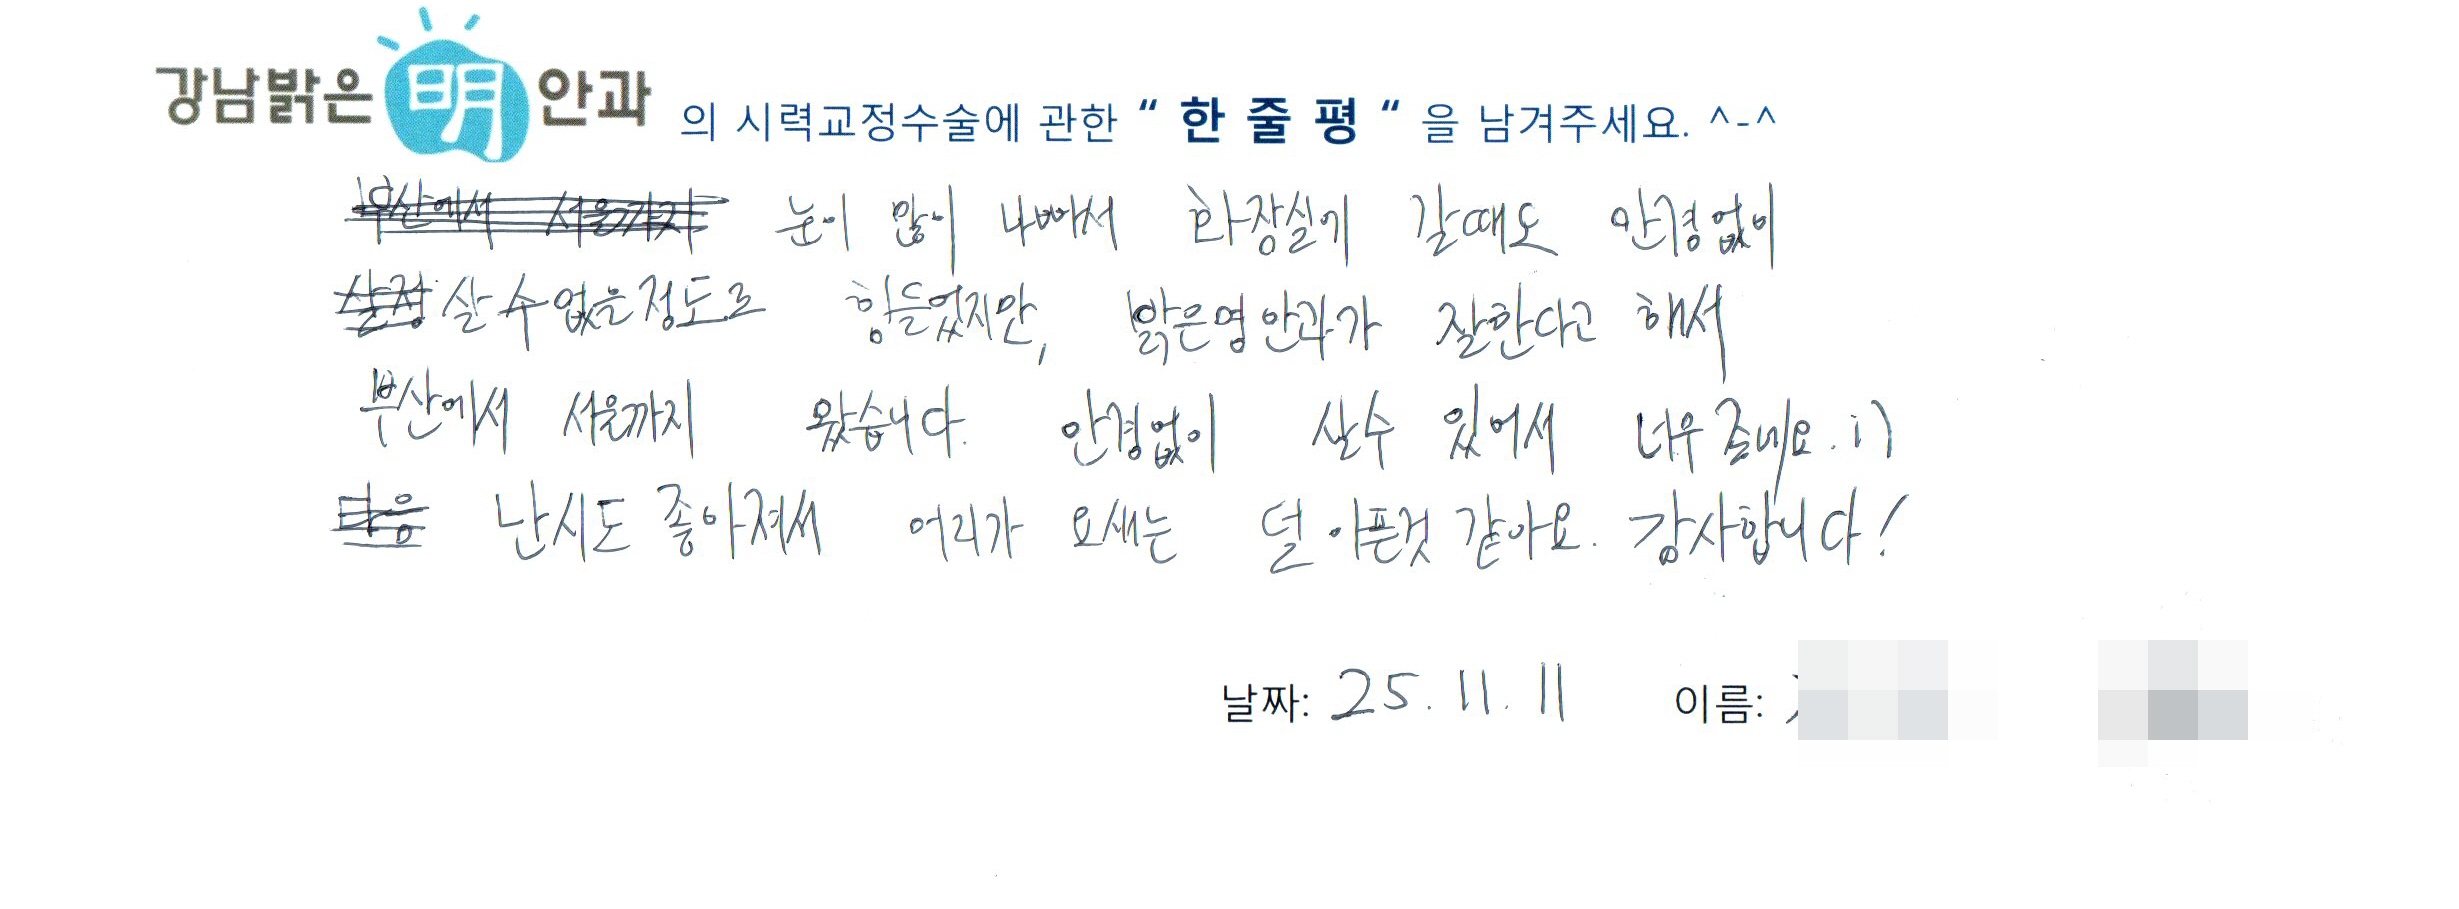 강남밝은明안과 의 시력교정수술에 관한 “ 한 줄 평 “ 을 남겨주세요. ^-^
부산에서 서울까지 눈이 많이 나빠서 화장실에 갈때도 안경없이
살정 살 수 없을정도로 힘들었지만, 밝은명안과가 잘한다고 해서
부산에서 서울까지 왔습니다. 안경없이 살수 있어서 너무 좋네요. :)
다음 난시도 좋아져서 머리가 요새는 덜 아픈것 같아요. 감사합니다!
날짜: 25. 11. 11 이름: